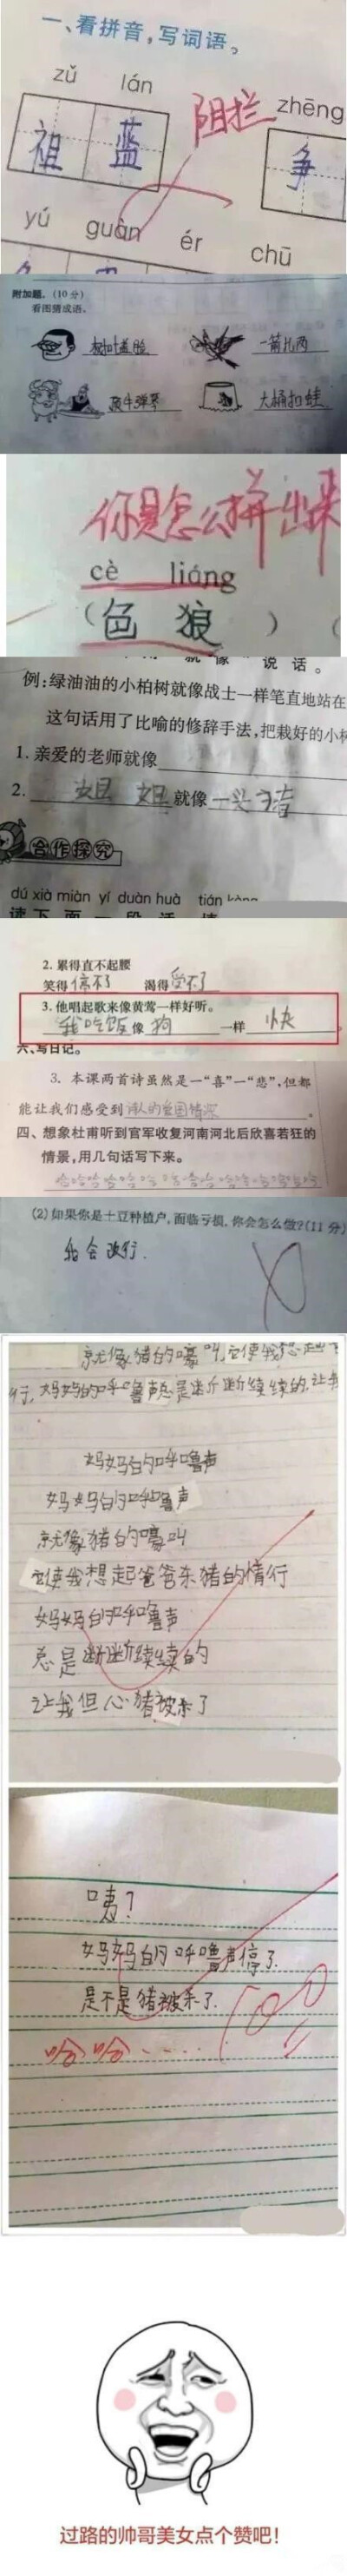 一、看拼音，写词语。
zǔ lán
阻拦
zhēng
祖 蓝
争
yú guàn ér chū
附加题。(10分)
看图猜成语。
树叶盖脸
一箭比丙
顶牛弹琴
大桶扣蛙
你是怎么拼出来
cè liáng
(色 狼)
就 像 说 话 。
例：绿油油的小柏树就像战士一样笔直地站在
这句话用了比喻的修辞手法，把栽好的小树
1. 亲爱的老师就像
2. 姐 姐 就像 一头猪
合作探究
dú xià miàn yí duàn huà
读 下 面 一 段 话
2. 累得直不起腰
笑得停不了 渴得受不了
3. 他唱起歌来像黄莺一样好听。
我吃饭 像 狗 一样 快 。
六、写日记。
3. 本课两首诗虽然是一“喜”一“悲”，但都
能让我们感受到诗人的爱国情深。
四、想象杜甫听到官军收复河南河北后欣喜若狂的
情景，用几句话写下来。
哈哈哈哈哈哈哈哈哈哈哈哈哈哈哈
(2) 如果你是土豆种植户，面临亏损，你会怎么做？(11分)
我会改行.
就像猪的嚎叫,它使我想起
行，妈妈的呼噜声总是断断续续的，让我
妈妈的呼噜声
妈妈的呼噜声
就像猪的嚎叫
它使我想起爸爸杀猪的情行
妈妈的呼噜声
总是断断续续的
让我但心猪被杀了
咦？
妈妈的呼噜声停了.
是不是猪被杀了.
100
哈哈.....
过路的帅哥美女点个赞吧！